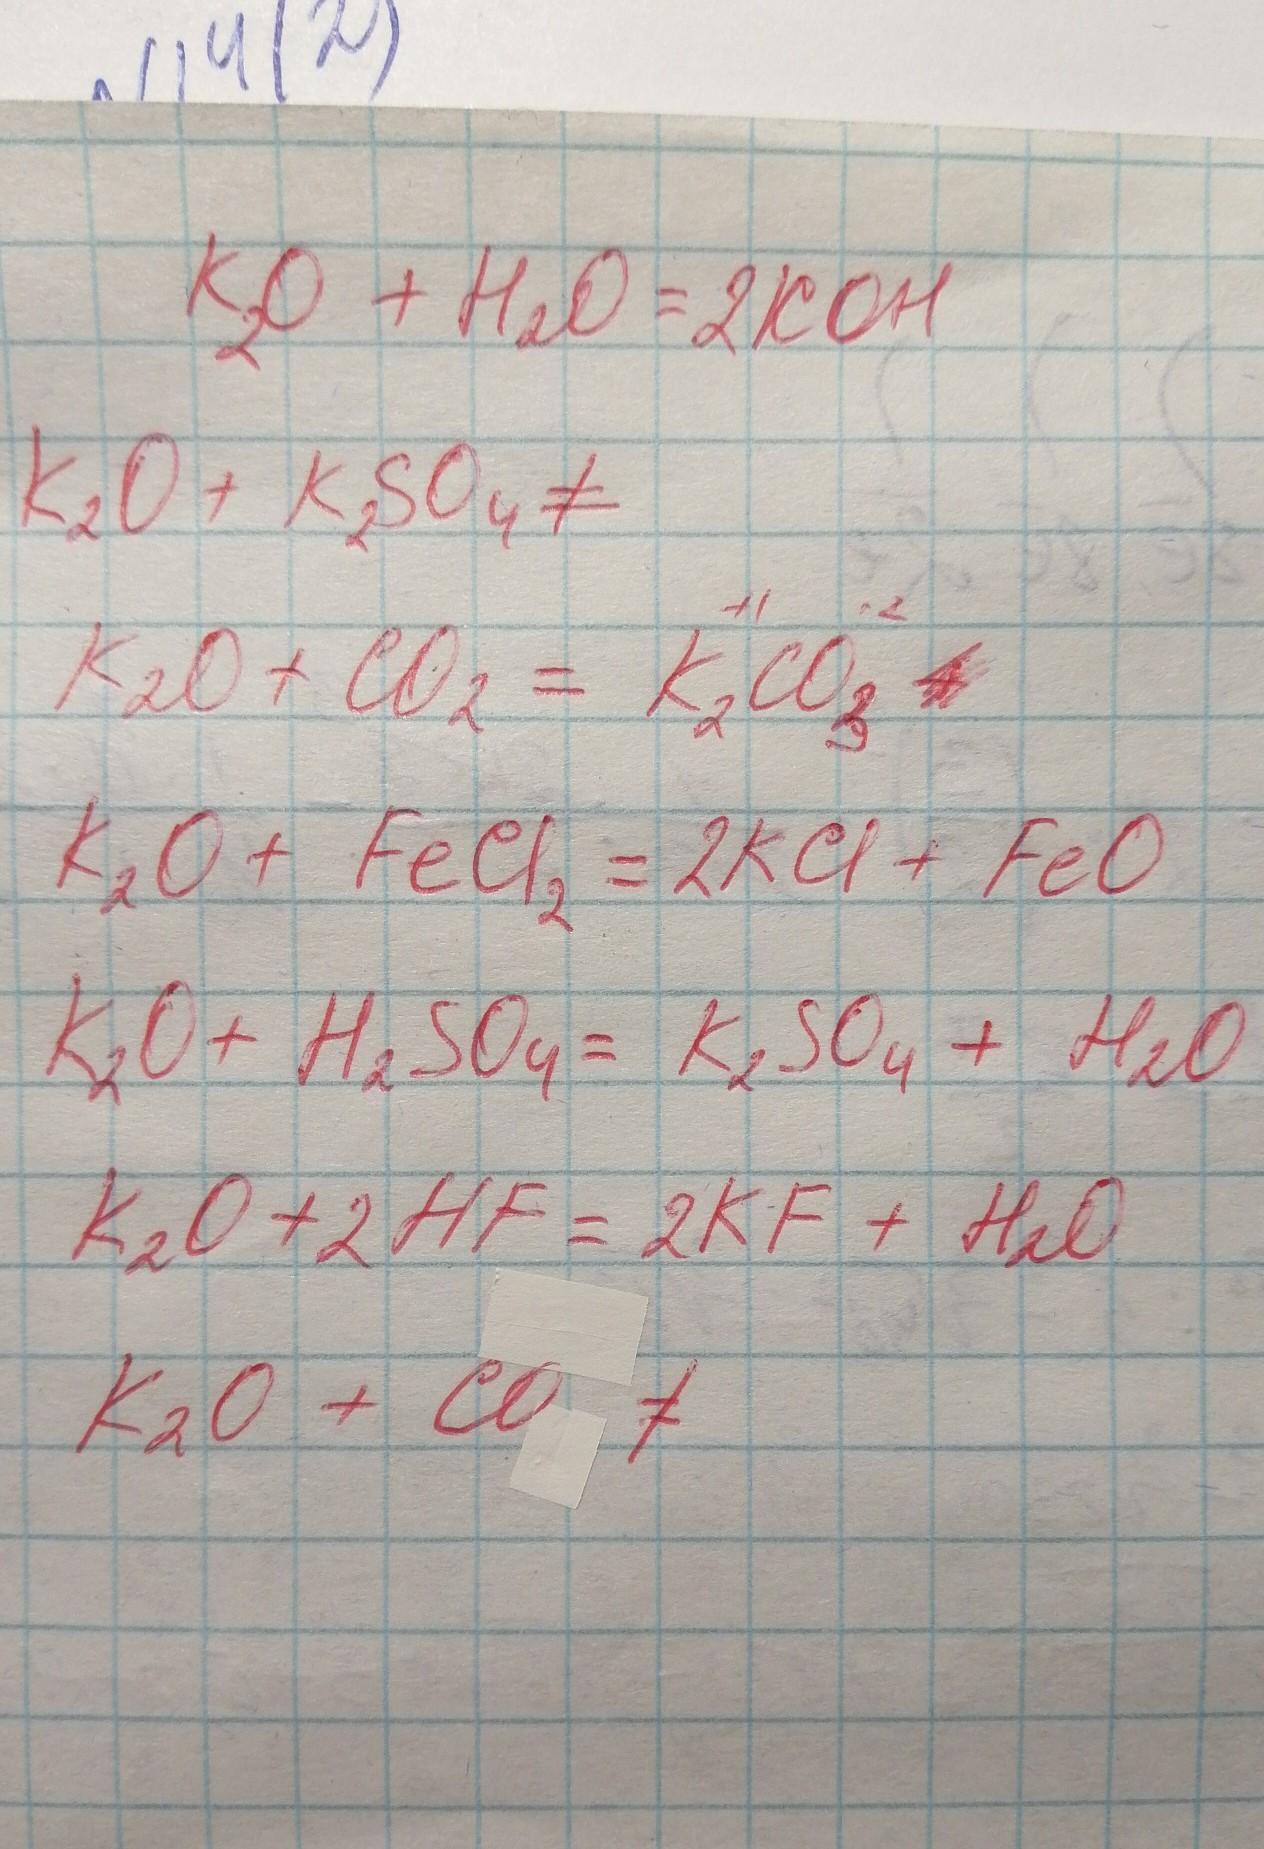 N14(2)
K₂O + H₂O = 2KOH
K₂O + K₂SO₄ ≠
+1 -2
K₂O + CO₂ = K₂CO₃
K₂O + FeCl₂ = 2KCl + FeO
K₂O + H₂SO₄ = K₂SO₄ + H₂O
K₂O + 2HF = 2KF + H₂O
K₂O + CO ≠